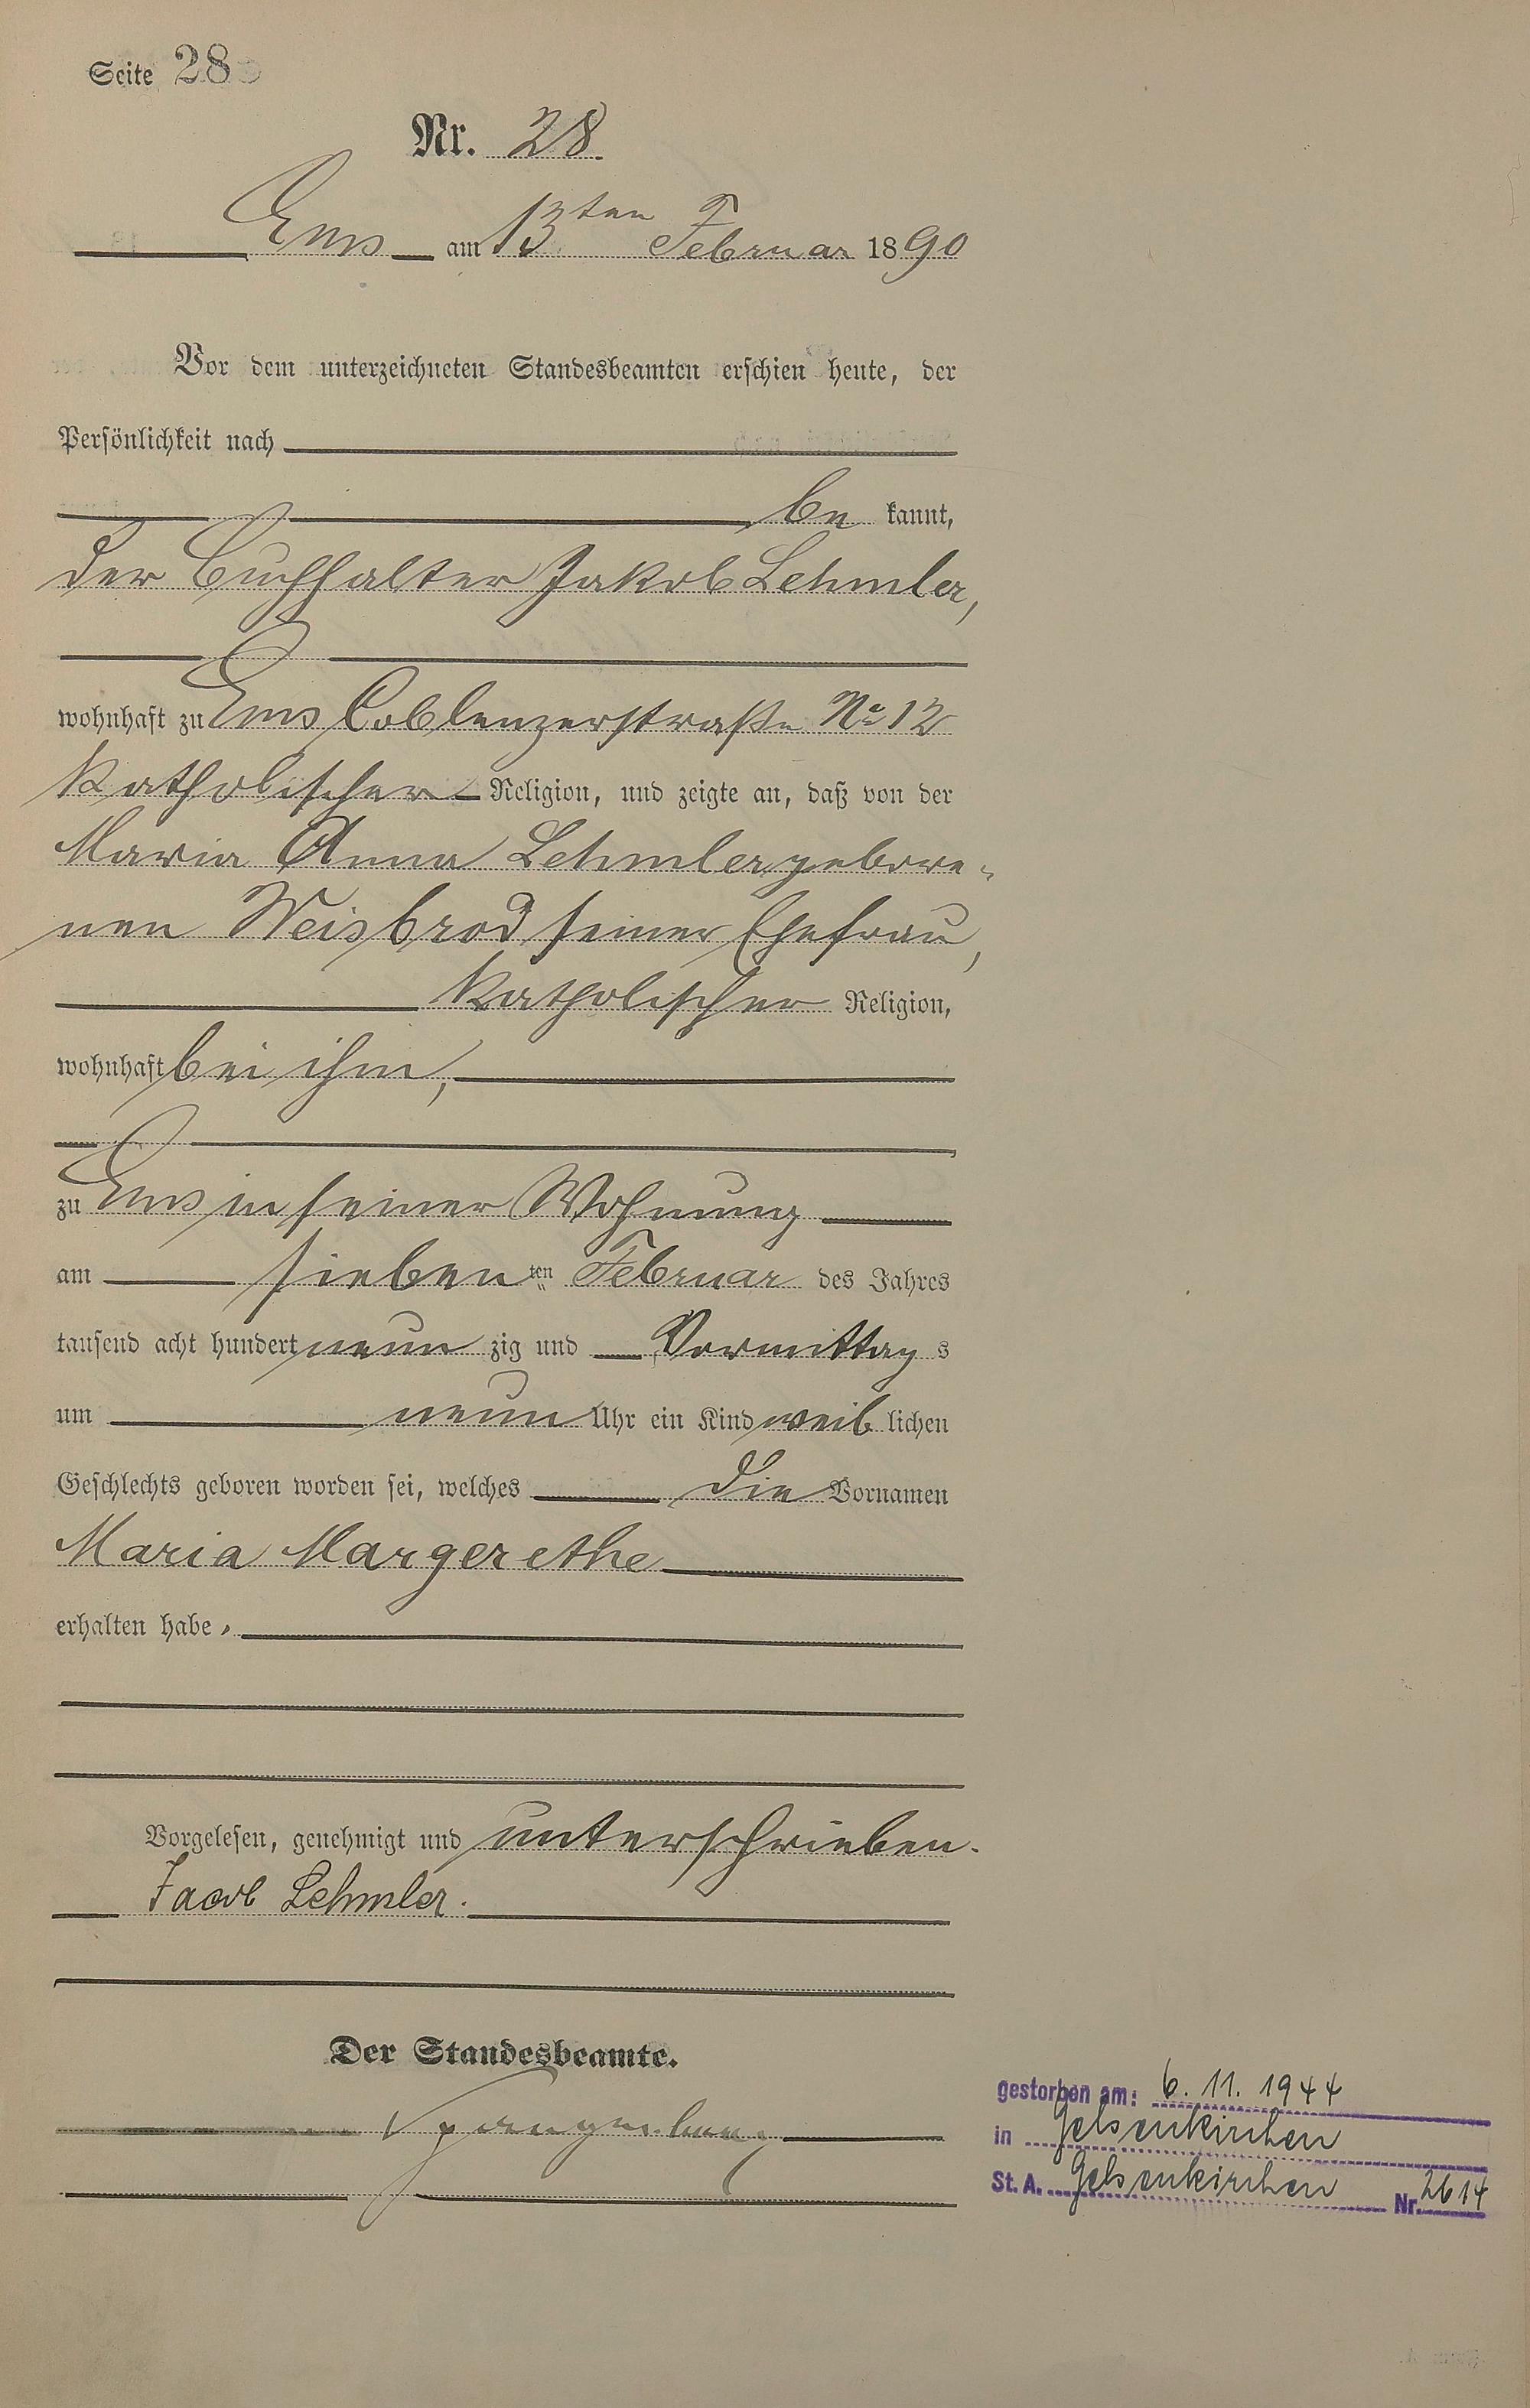 Seite 28
Nr. 28.
Ems am 13ten Februar 1890
Vor dem unterzeichneten Standesbeamten erschien heute, der
Persönlichkeit nach
be kannt,
der Buchhalter Jakob Lehmler,
wohnhaft zu Ems Coblenzerstraße No 12
katholischer Religion, und zeigte an, daß von der
Maria Anna Lehmler gebore-
nen Weisbrod seiner Ehefrau,
katholischer Religion,
wohnhaft bei ihm,
zu Ems in seiner Wohnung
am siebenten Februar des Jahres
tausend acht hundert neun zig und Vormittag s
um neun Uhr ein Kind weib lichen
Geschlechts geboren worden sei, welches die Vornamen
Maria Margerethe
erhalten habe.
Vorgelesen, genehmigt und unterschrieben.
Jacob Lehmler.
Der Standesbeamte.
gestorben am: 6. 11. 1944
in Gelsenkirchen
St. A. Gelsenkirchen Nr. 2614